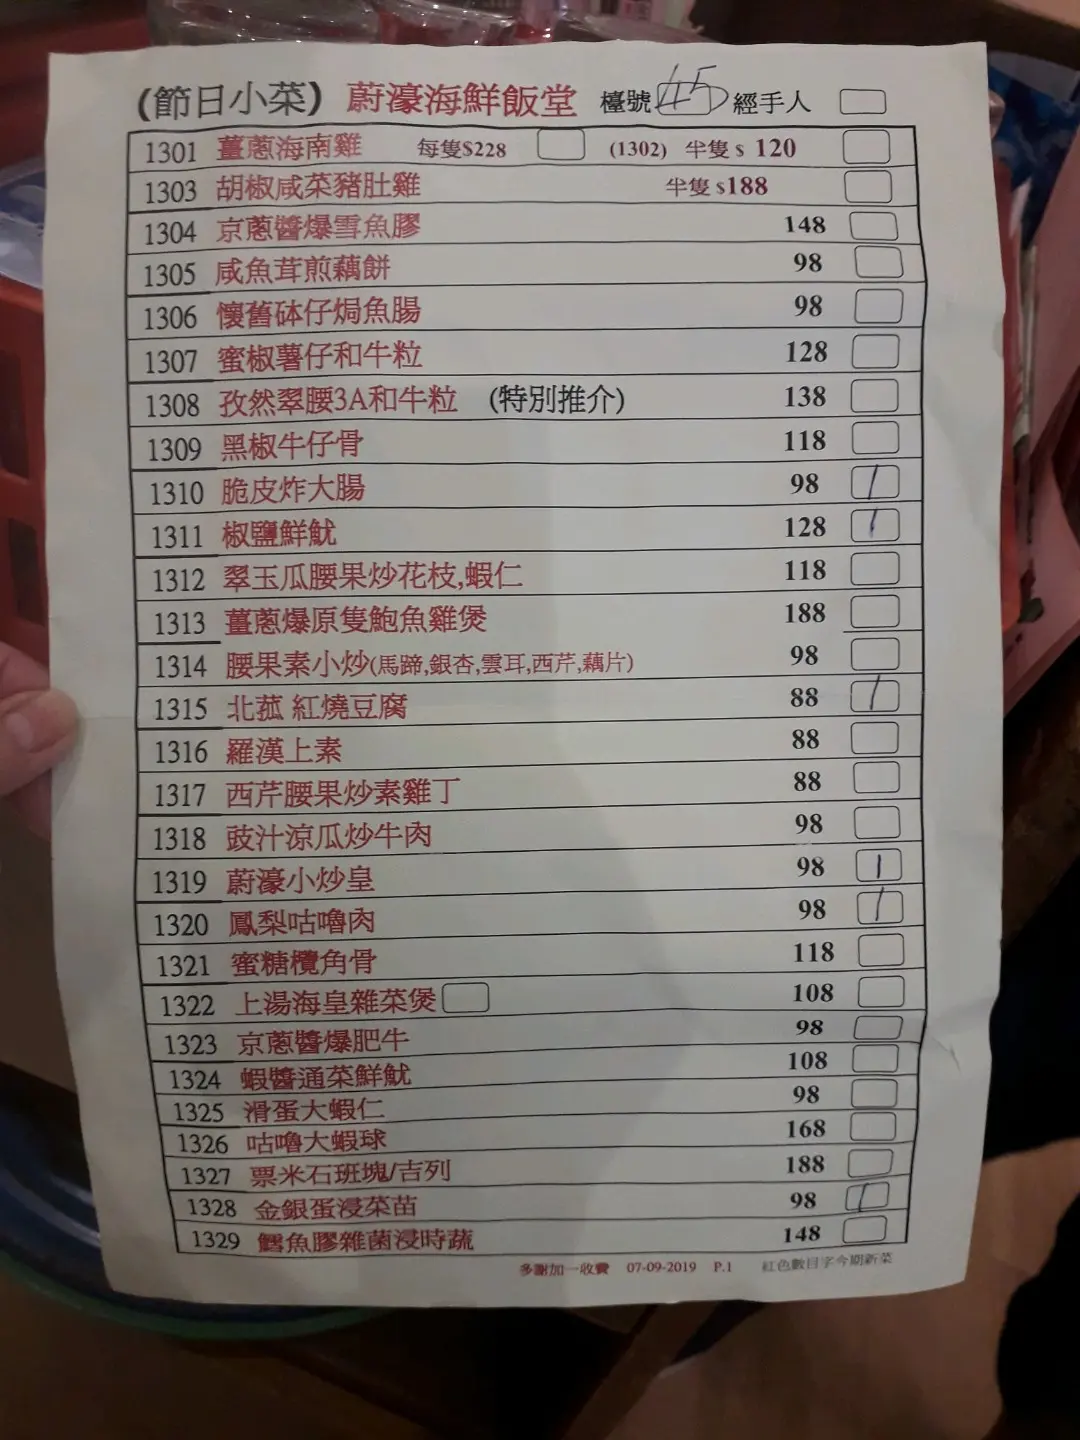 (節日小菜) 蔚濠海鮮飯堂 檯號 45 經手人
1301 薑蔥海南雞 每隻$228 (1302) 半隻 $ 120
1303 胡椒咸菜豬肚雞 半隻 $188
1304 京蔥醬爆雪魚膠 148
1305 咸魚茸煎藕餅 98
1306 懷舊砵仔焗魚腸 98
1307 蜜椒薯仔和牛粒 128
1308 孜然翠腰3A和牛粒 (特別推介) 138
1309 黑椒牛仔骨 118
1310 脆皮炸大腸 98 /
1311 椒鹽鮮魷 128 /
1312 翠玉瓜腰果炒花枝,蝦仁 118
1313 薑蔥爆原隻鮑魚雞煲 188
1314 腰果素小炒(馬蹄,銀杏,雲耳,西芹,藕片) 98
1315 北菰 紅燒豆腐 88 /
1316 羅漢上素 88
1317 西芹腰果炒素雞丁 88
1318 豉汁涼瓜炒牛肉 98
1319 蔚濠小炒皇 98 /
1320 鳳梨咕嚕肉 98 /
1321 蜜糖欖角骨 118
1322 上湯海皇雜菜煲 108
1323 京蔥醬爆肥牛 98
1324 蝦醬通菜鮮魷 108
1325 滑蛋大蝦仁 98
1326 咕嚕大蝦球 168
1327 粟米石班塊/吉列 188
1328 金銀蛋浸菜苗 98 /
1329 鱈魚膠雜菌浸時蔬 148
多謝加一收費 07-09-2019 P.1 紅色數目字今期新菜